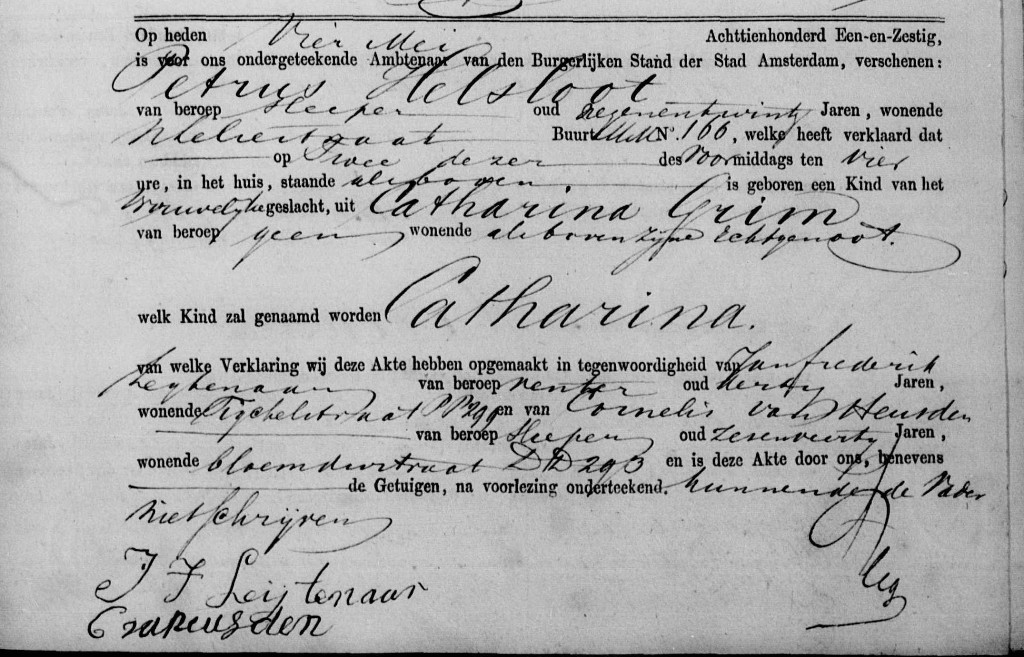 Op heden Vier Mei Achttienhonderd Een-en-Zestig,
is voor ons ondergeteekende Ambtenaar van den Burgerlijken Stand der Stad Amsterdam, verschenen:
Petrus Helsloot
van beroep Sleeper oud Negenentwintig Jaren, wonende
Buurt N°. 166, welke heeft verklaard dat
op Twee dezer des Voormiddags ten Vier
ure, in het huis, staande alsboven is geboren een Kind van het
Vrouwelyke geslacht, uit Catharina Grim
van beroep geen wonende alsboven zyne Echtgenoot.
welk Kind zal genaamd worden Catharina.
van welke Verklaring wij deze Akte hebben opgemaakt in tegenwoordigheid van Jan Frederik
Leytenaar van beroep oud Jaren,
wonende Tychelstraat PP 299 en van Cornelis van Heusden
van beroep Sleeper oud Zesenveertig Jaren,
wonende bloemdwstraat DD 293 en is deze Akte door ons, benevens
de Getuigen, na voorlezing onderteekend. kunnende de Vader
niet schryven
J F Leijtenaar
C van Heusden